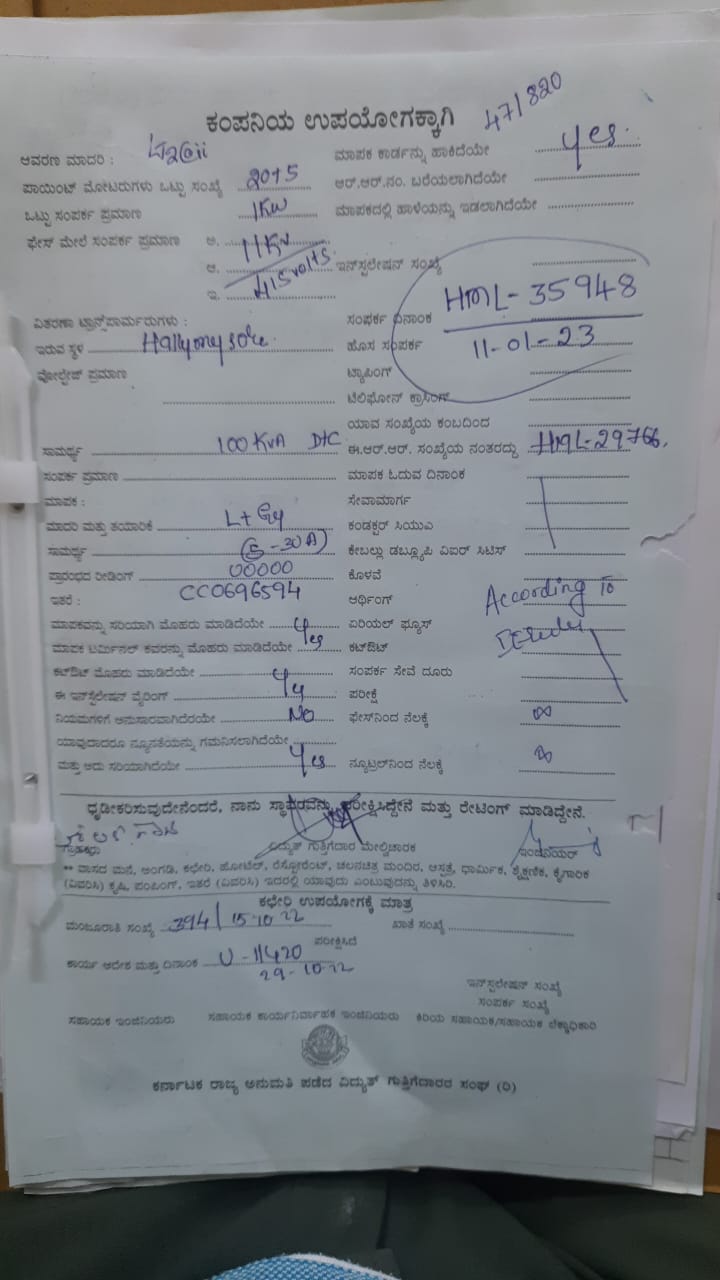 ಕಂಪನಿಯ ಉಪಯೋಗಕ್ಕಾಗಿ 47/820
ಆವರಣ ಮಾದರಿ : ಮಾಪಕ ಕಾರ್ಡನ್ನು ಹಾಕಿದೆಯೇ Yes.
ಪಾಯಿಂಟ್ ಮೋಟರುಗಳು ಒಟ್ಟು ಸಂಖ್ಯೆ ಆರ್.ಆರ್.ನಂ. ಬರೆಯಲಾಗಿದೆಯೇ
ಒಟ್ಟು ಸಂಪರ್ಕ ಪ್ರಮಾಣ 1KW ಮಾಪಕದಲ್ಲಿ ಹಾಳೆಯನ್ನು ಇಡಲಾಗಿದೆಯೇ
ಫೇಸ್ ಮೇಲೆ ಸಂಪರ್ಕ ಪ್ರಮಾಣ ಅ. 11Kv
ಆ. ಇನ್‌ಸ್ಟಲೇಷನ್ ಸಂಖ್ಯೆ
ಇ. 415volts
HML-35948
ವಿತರಣಾ ಟ್ರಾನ್ಸ್‌ಪಾರ್ಮರುಗಳು : ಸಂಪರ್ಕ ದಿನಾಂಕ
ಇರುವ ಸ್ಥಳ Hallymysore ಹೊಸ ಸಂಪರ್ಕ 11-01-23
ವೋಲ್ಟೇಜ್ ಪ್ರಮಾಣ ಟ್ಯಾಪಿಂಗ್
ಟೆಲಿಫೋನ್ ಕ್ರಾಸಿಂಗ್
ಯಾವ ಸಂಖ್ಯೆಯ ಕಂಬದಿಂದ
ಸಾಮರ್ಥ್ಯ 100 KVA ಈ.ಆರ್.ಆರ್. ಸಂಖ್ಯೆಯ ನಂತರದ್ದು HML-29766.
ಸಂಪರ್ಕ ಪ್ರಮಾಣ ಮಾಪಕ ಓದುವ ದಿನಾಂಕ
ಮಾಪಕ : ಸೇವಾಮಾರ್ಗ
ಮಾದರಿ ಮತ್ತು ತಯಾರಿಕೆ ಕಂಡಕ್ಟರ್ ಸಿಯುಎ
ಸಾಮರ್ಥ್ಯ (5-30A) ಕೇಬಲ್ಲು ಡಬ್ಲ್ಯೂಪಿ ವಿಐರ್ ಸಿಟಿಸ್
ಪ್ರಾರಂಭದ ರೀಡಿಂಗ್ 00000 ಕೊಳವೆ
ಇತರೆ : CC0696594 ಆರ್ಥಿಂಗ್ According To
ಮಾಪಕವನ್ನು ಸರಿಯಾಗಿ ಮೊಹರು ಮಾಡಿದೆಯೇ ಏರಿಯಲ್ ಫ್ಯೂಸ್
ಮಾಪಕ ಟರ್ಮಿನಲ್ ಕವರನ್ನು ಮೊಹರು ಮಾಡಿದೆಯೇ Yes ಕಟ್‌ಔಟ್
ಕಟ್‌ಔಟ್ ಮೊಹರು ಮಾಡಿದೆಯೇ ಸಂಪರ್ಕ ಸೇವೆ ದೂರು
ಈ ಇನ್‌ಸ್ಟಲೇಷನ್ ವೈರಿಂಗ್ ಪರೀಕ್ಷೆ
ನಿಯಮಗಳಿಗೆ ಅನುಸಾರವಾಗಿದೆರಯೇ No ಫೇಸ್‌ನಿಂದ ನೆಲಕ್ಕೆ ∞
ಯಾವುದಾದರೂ ನ್ಯೂನತೆಯನ್ನು ಗಮನಿಸಲಾಗಿದೆಯೇ
ಮತ್ತು ಅದು ಸರಿಯಾಗಿದೆಯೇ Yes ನ್ಯೂಟ್ರಲ್‌ನಿಂದ ನೆಲಕ್ಕೆ ∞
ಧೃಡೀಕರಿಸುವುದೇನೆಂದರೆ, ನಾನು ಸ್ಥಾವರವನ್ನು ಪರೀಕ್ಷಿಸಿದ್ದೇನೆ ಮತ್ತು ರೇಟಿಂಗ್ ಮಾಡಿದ್ದೇನೆ.
ಗ್ರಾಹಕರು ವಿದ್ಯುತ್ ಗುತ್ತಿಗೆದಾರ ಮೇಲ್ವಿಚಾರಕ ಇಂಜಿನಿಯರ್
** ವಾಸದ ಮನೆ, ಅಂಗಡಿ, ಕಛೇರಿ, ಹೋಟೆಲ್, ರೆಸ್ಟೋರೆಂಟ್, ಚಲನಚಿತ್ರ ಮಂದಿರ, ಆಸ್ಪತ್ರೆ, ಧಾರ್ಮಿಕ, ಶೈಕ್ಷಣಿಕ, ಕೈಗಾರಿಕ
(ವಿವರಿಸಿ) ಕೃಷಿ, ಪಂಪಿಂಗ್, ಇತರೆ (ವಿವರಿಸಿ) ಇದರಲ್ಲಿ ಯಾವುದು ಎಂಬುವುದನ್ನು ತಿಳಿಸಿರಿ.
ಕಛೇರಿ ಉಪಯೋಗಕ್ಕೆ ಮಾತ್ರ
ಮಂಜೂರಾತಿ ಸಂಖ್ಯೆ 394/15-10-22 ಖಾತೆ ಸಂಖ್ಯೆ
ಪರೀಕ್ಷಿಸಿದೆ
ಕಾರ್ಯ ಆದೇಶ ಮತ್ತು ದಿನಾಂಕ U-11420
29-10-22
ಇನ್‌ಸ್ಟಲೇಷನ್ ಸಂಖ್ಯೆ
ಸಂಪರ್ಕ ಸಂಖ್ಯೆ
ಸಹಾಯಕ ಇಂಜಿನಿಯರು ಸಹಾಯಕ ಕಾರ್ಯನಿರ್ವಾಹಕ ಇಂಜಿನಿಯರು ಕಿರಿಯ ಸಹಾಯಕ/ಸಹಾಯಕ ಲೆಕ್ಕಾಧಿಕಾರಿ
ಕರ್ನಾಟಕ ರಾಜ್ಯ ಅನುಮತಿ ಪಡೆದ ವಿದ್ಯುತ್ ಗುತ್ತಿಗೆದಾರರ ಸಂಘ (ರಿ)